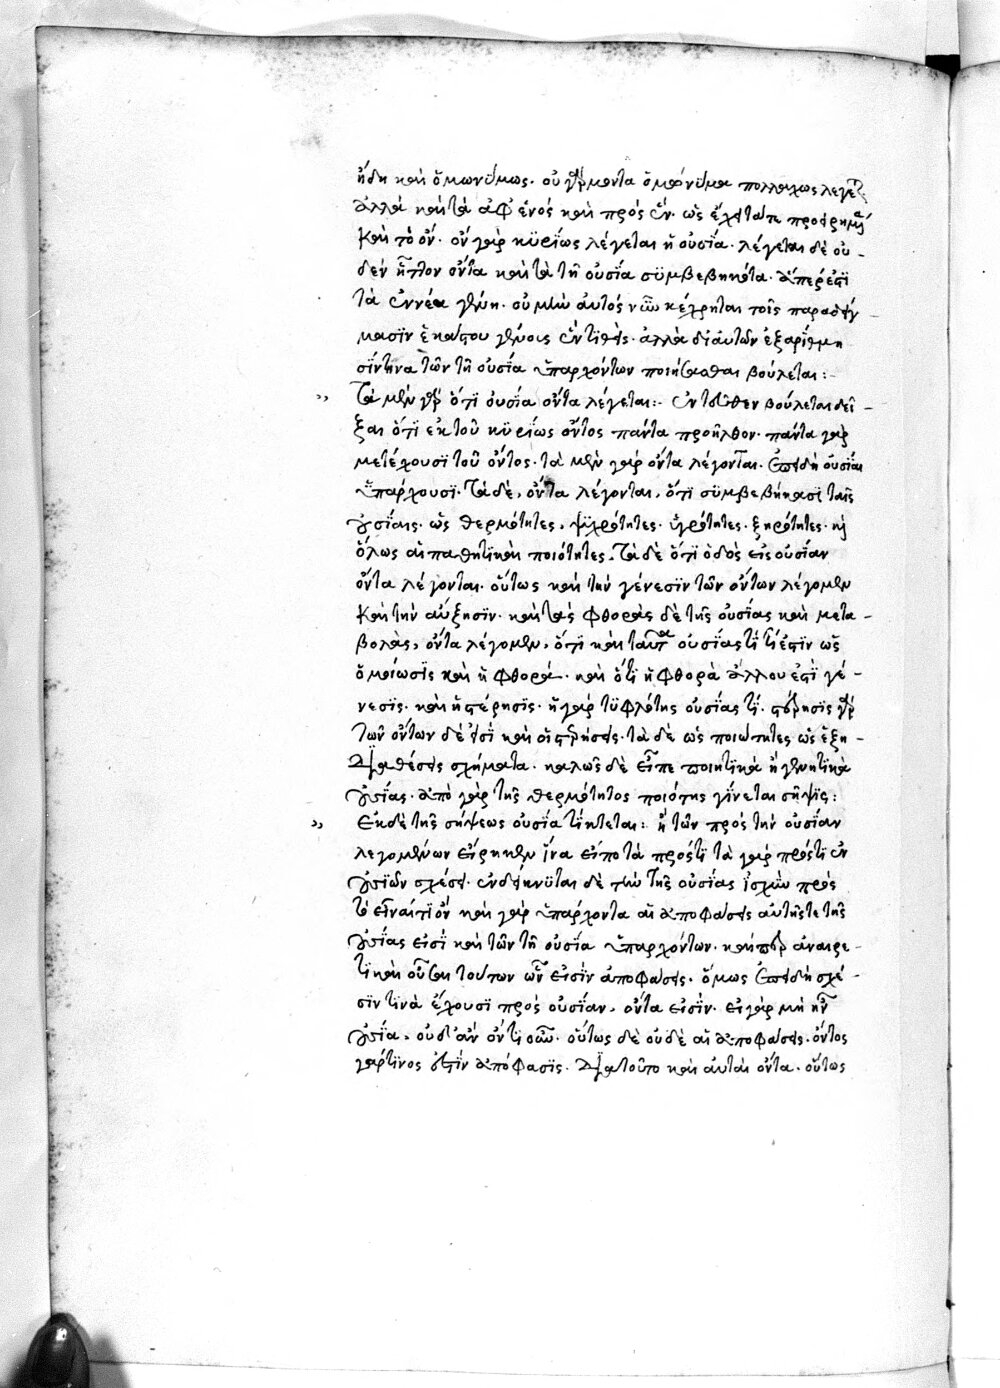 ἤδη καὶ ὁμωνύμως. οὐ γὰρ μόνον τὰ ὁμώνυμα πολλαχῶς λέγεται
ἀλλὰ καὶ τὰ ἀφ' ἑνὸς καὶ πρὸς ἕν. ὡς
καὶ τὸ ὄν. ὂν γὰρ κϋρίως λέγεται ἡ οὐσία. λέγεται δὲ οὐ-
δὲν ἧττον ὄντα καὶ τὰ τῆ οὐσία σϋμβεβηκότα. ἅπερ ἐστὶ
τὰ ἐννέα γένη. οὐ μὴν αὐτός κέχρηται τοῖς παραδείγ-
μασϊν ἑκάστου γένους ἐντιθείς. ἀλλὰ δι' αὐτῶν ἐξαρίθμη
σίν τινα τῶν τῆ οὐσία ὑπαρχόντων ποιήσασθαι βούλεται:-
τὰ μὲν γὰρ ὅτϊ οὐσία ὄντα λέγεται:- ἐντεῦθεν βούλεται δεῖ-
ξαι ὅτϊ ἐκ τοῦ κϋρίως ὄντος πάντα προῆλθον. πάντα γὰρ
μετέχουσϊ τοῦ ὄντος. τὰ μὲν γὰρ ὄντα λέγονται. ἐπειδὴ οὐσίαι
ὑπάρχουσϊ. τὰ δὲ, ὄντα λέγονται, ὅτϊ σϋμβεβήκασϊ ταῖς
οὐσίαις. ὡς θερμότητες, ψϋχρότητες. ὑγρότητες. ξηρότητες. καὶ
ὅλως αἱ παθητϊκαὶ ποιότητες. τὰ δὲ ὅτϊ ὁδὸς εἰς οὐσίαν
ὄντα λέγονται. οὕτως καὶ τὴν γένεσϊν τῶν ὄντων λέγομεν
καὶ τὴν αὔξησϊν. καὶ τὰς φθορὰς δὲ τῆς οὐσίας καὶ μετα-
βολὰς, ὄντα λέγομεν, ὅτϊ καὶ ταῦτα οὐσίας τί τί ἐστϊν ὡς
ὁμοίωσϊς καὶ ἡ φθορά. καὶ ὅτϊ ἡ φθορὰ ἄλλου ἐστὶ γέ-
νεσϊς. καὶ ἡ στέρησϊς. ἡ γὰρ τϋφλότης οὐσίας τί. στέρησϊς γὰρ
τῶν ὄντων δέ εἰσϊ καὶ αἱ στερήσεις. τὰ δὲ ὡς ποιότητες ὡς ἕξη-
διαθέσεις σχήματα. καλῶς δὲ εἶπε ποιητϊκὰ ἢ γεννητϊκὰ
οὐσίας. ἀπὸ γὰρ τῆς θερμότητος ποιότης γίνεται σῆψις:
ἐκ δὲ τῆς σήψεως οὐσία τίκτεται: ἢ τῶν πρὸς τὴν οὐσίαν
λεγομένων εἴρηκεν ἵνα εἴπη τὰ πρός τϊ τὰ γὰρ πρός τϊ ἐν
οὐσϊῶν σχέσει. ἐνδείκνϋται δὲ τὴν τῆς οὐσίας ἰσχὺν πρὸς
τὸ εἶναί τϊ ὄν καὶ γὰρ ὑπάρχοντα αἱ ἀποφάσεις αὐτῆς τε τῆς
οὐσίας εἰσὶ καὶ τῶν τῆ οὐσία ὑπαρχόντων. καίπερ ἀναιρε-
τϊκαὶ οὖσαι τούτων ὧν εἰσϊν ἀποφάσεις. ὅμως ἐπειδὴ σχέ-
σϊν τϊνὰ ἔχουσϊ πρὸς οὐσίαν, ὄντα εἰσϊν. εἰ γὰρ μὴ ἦν
οὐσία, οὐδ' ἄν ὄν τϊ ἦν. οὕτως δὲ οὐδὲ αἱ ἀποφάσεις. ὄντος
γάρ τϊνος ἐστὶν ἀπόφασϊς. διὰ τοῦτο καὶ αὐταὶ ὄντα. οὕτως